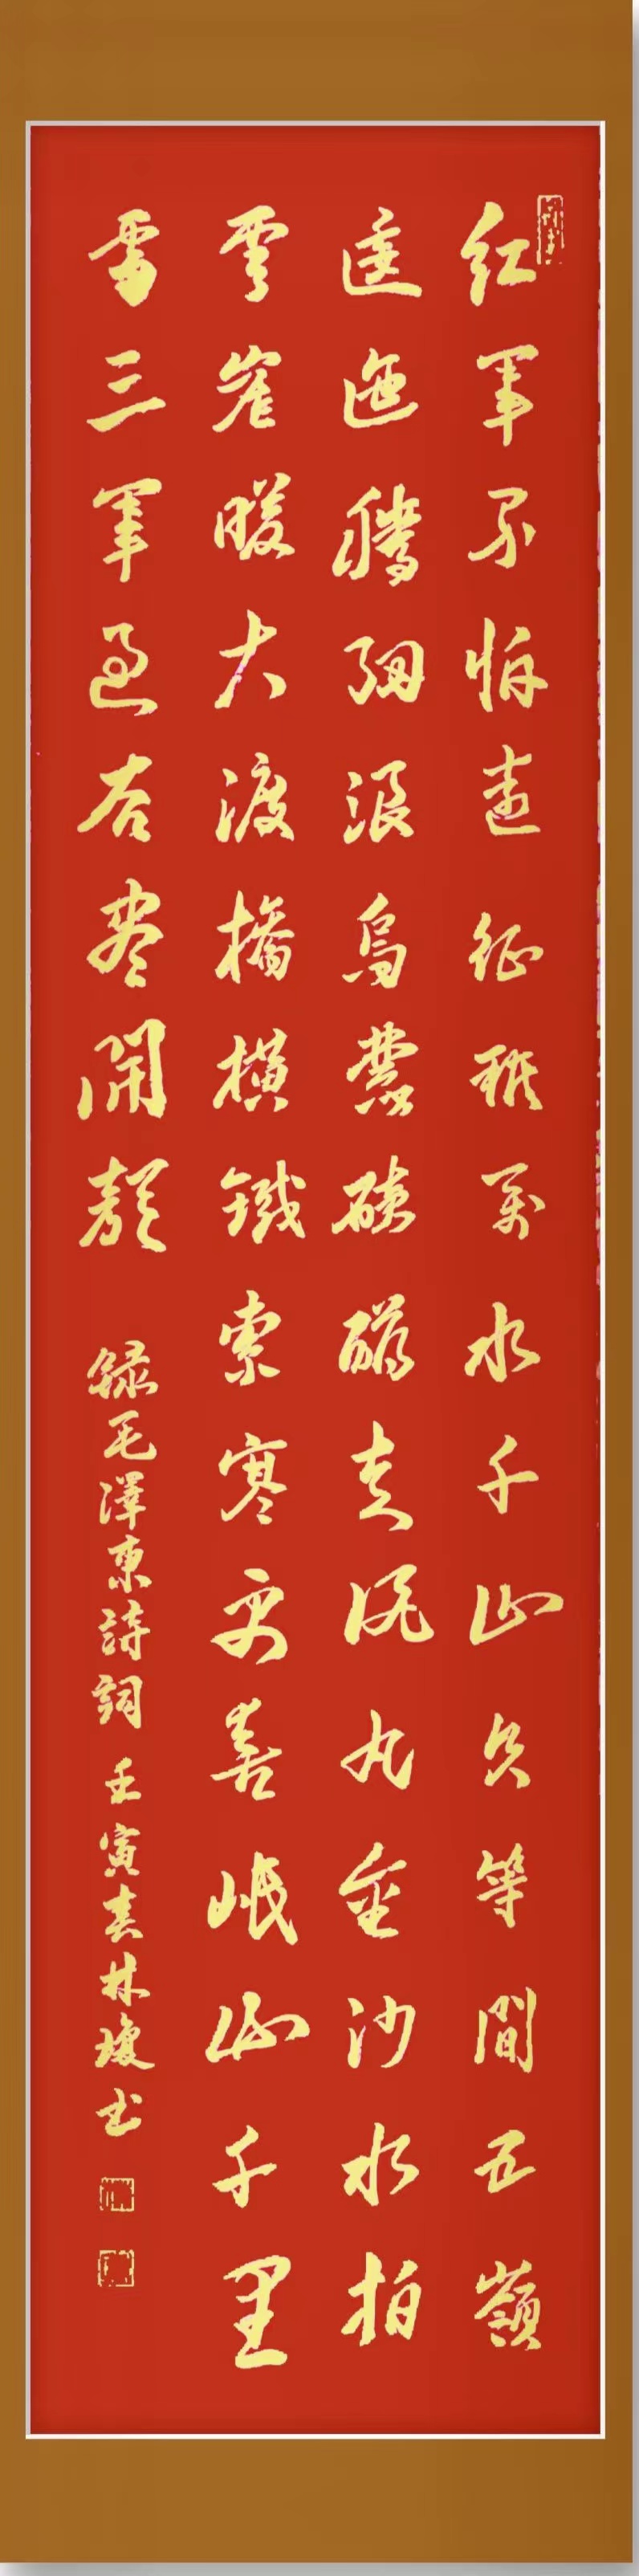 红軍不怕遠征難萬水千山只等間五嶺
逶迤騰細浪烏蒙磅礴走泥丸金沙水拍
雲崖暖大渡橋橫鐵索寒更喜岷山千里
雪三軍過后盡開顏 録毛澤東詩詞 壬寅春林瓊书